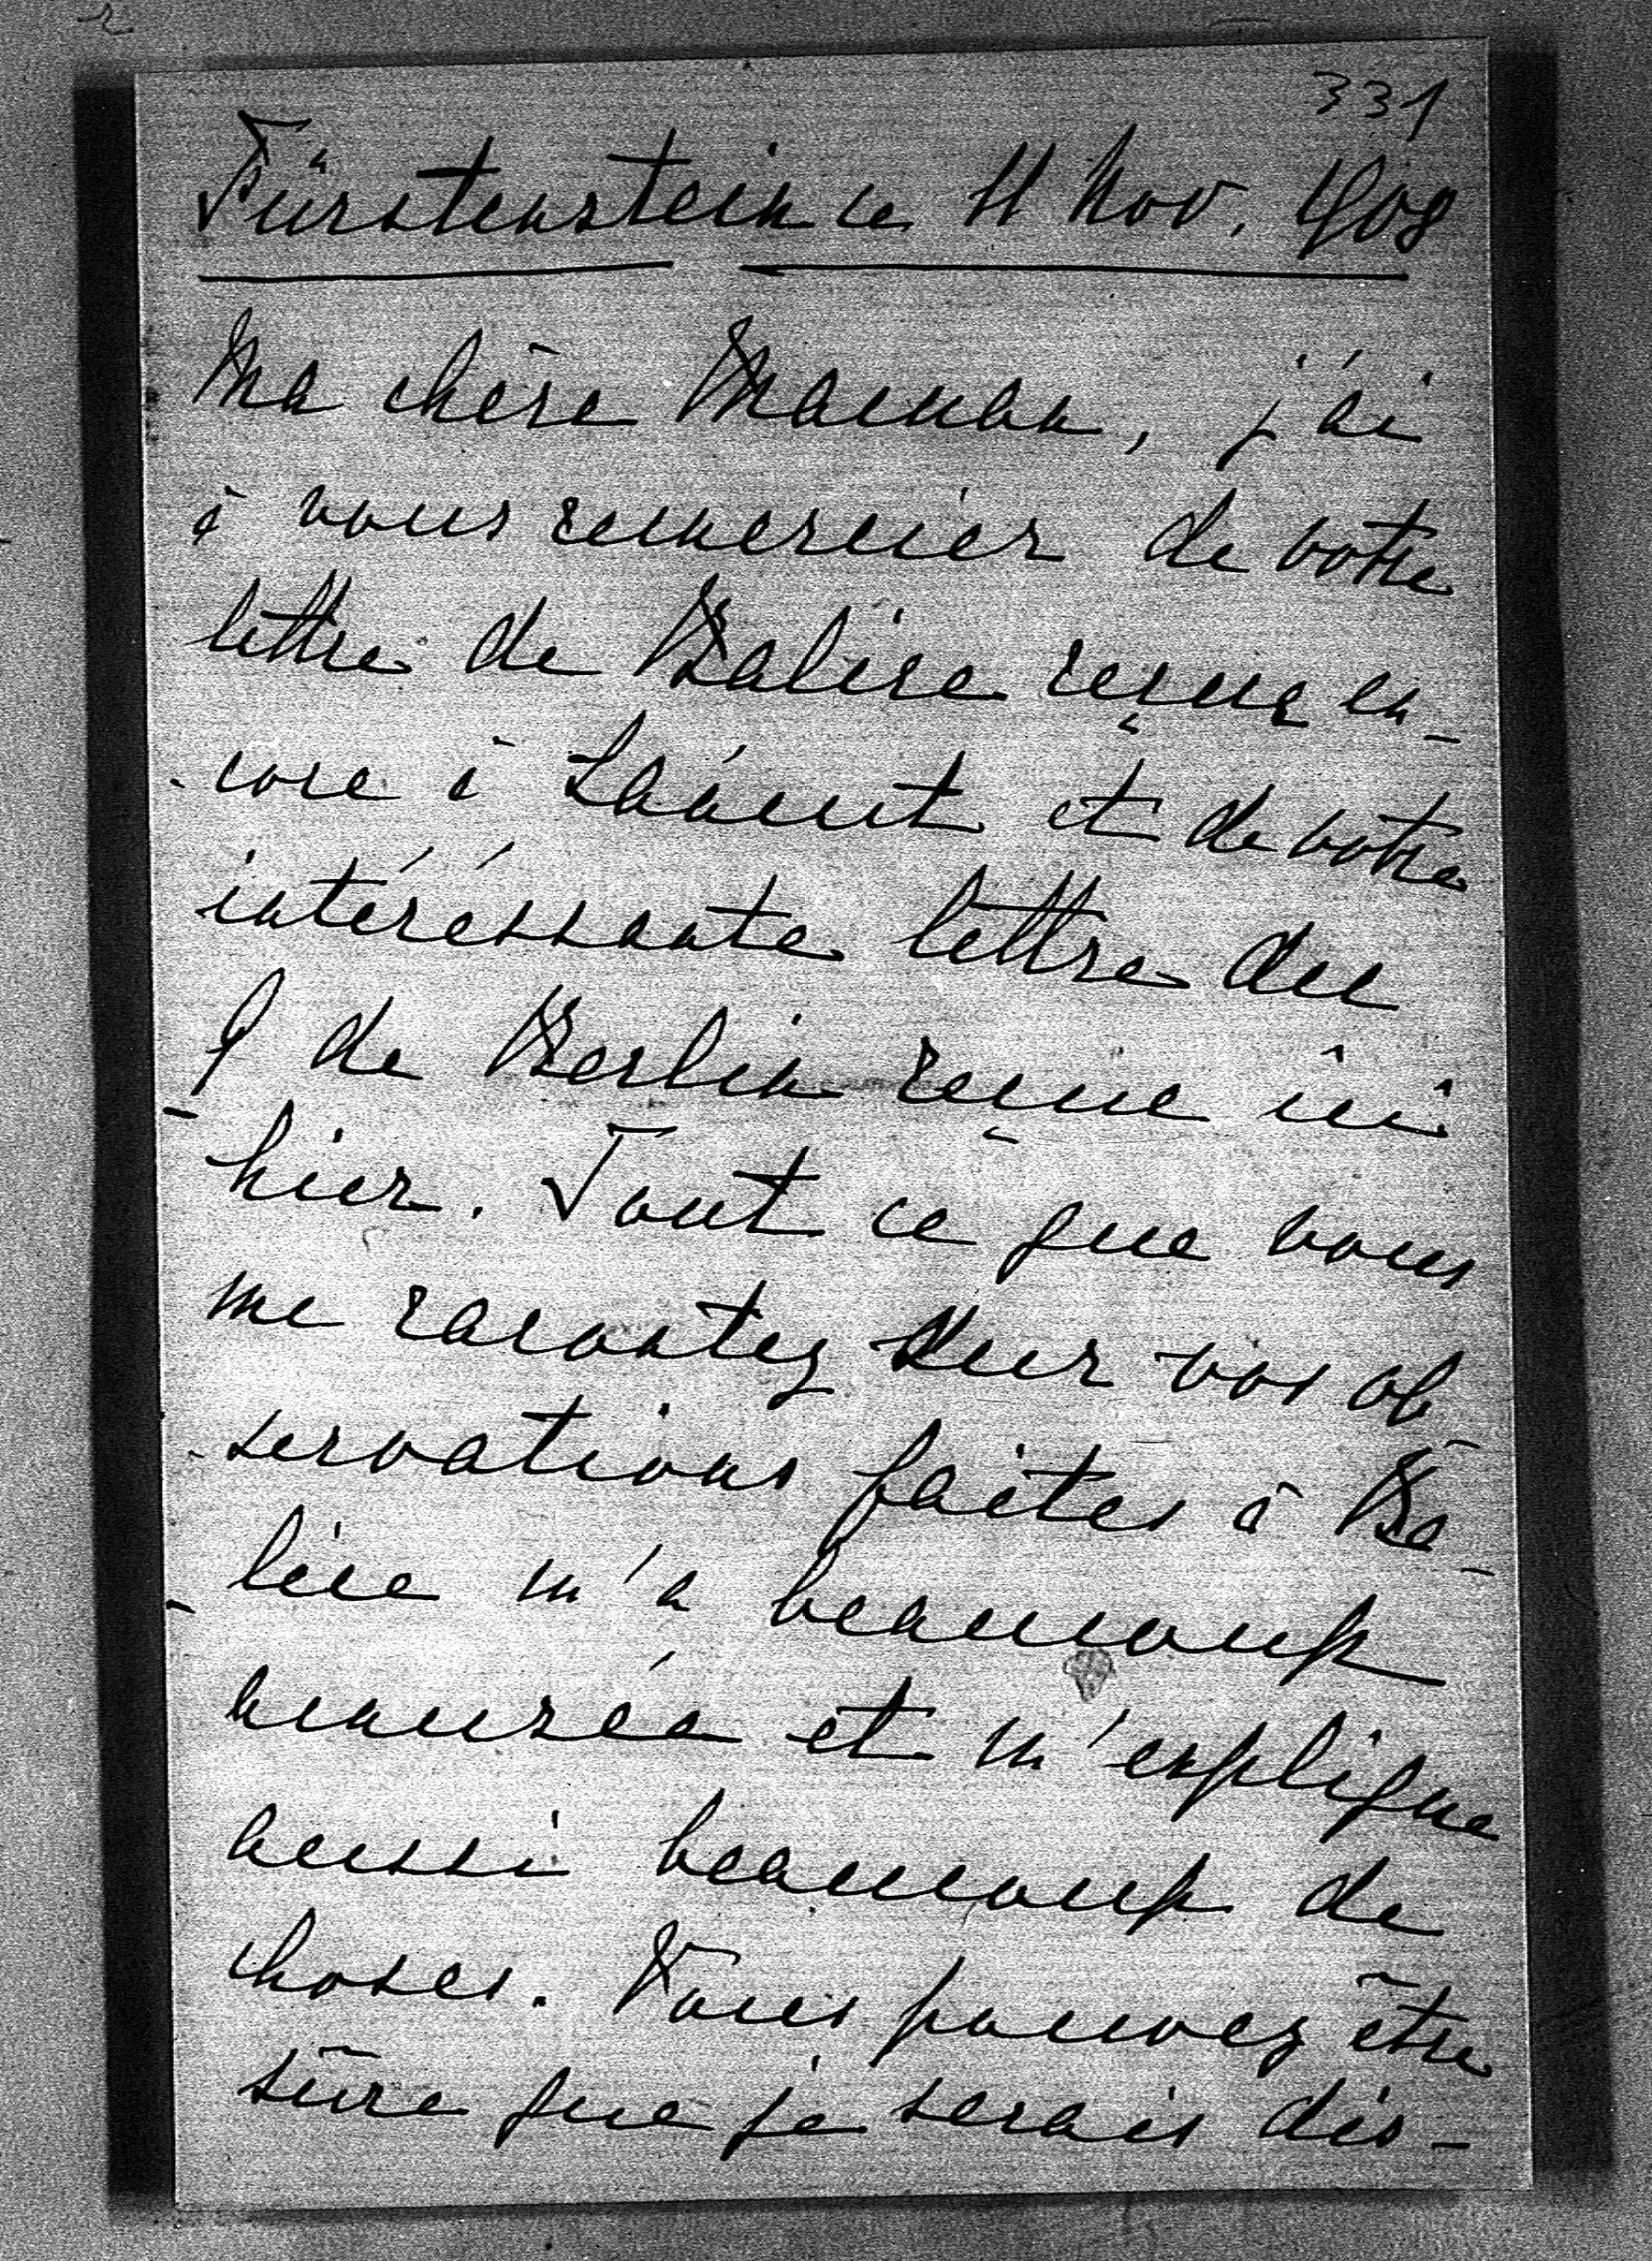 331
Fürstenstein ce 11 Nov. 908
Ma chère Maman, j'ai
à vous remercier de votre
lettre de Balice reçue en-
-core à Łańcut et de votre
intéréssante lettre du
9 de Berlin reçue ici
hier. Tout ce que vous
me racontez sur vos ob-
-servations faites à Ba-
-lice m'a beaucoup
amusée et m'explique
aussi beaucoup de
choses. Vous pouvez être
sûre que je serais dis-